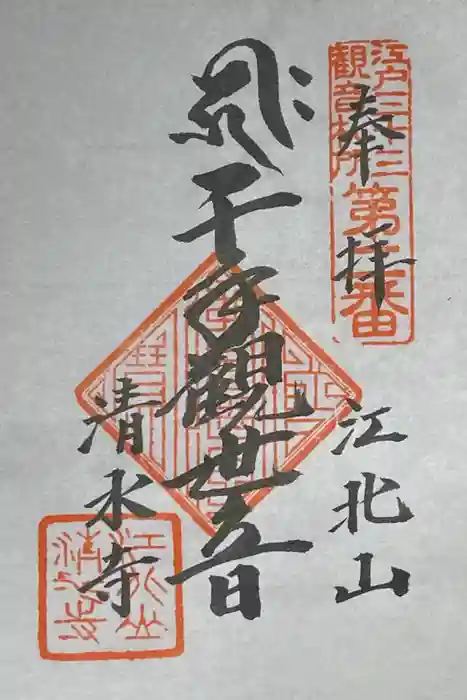 江戸三十三
観音札所
第二番
奉拝
江北山
ह्रीः
千手觀世音
清水寺
江北山
清水寺